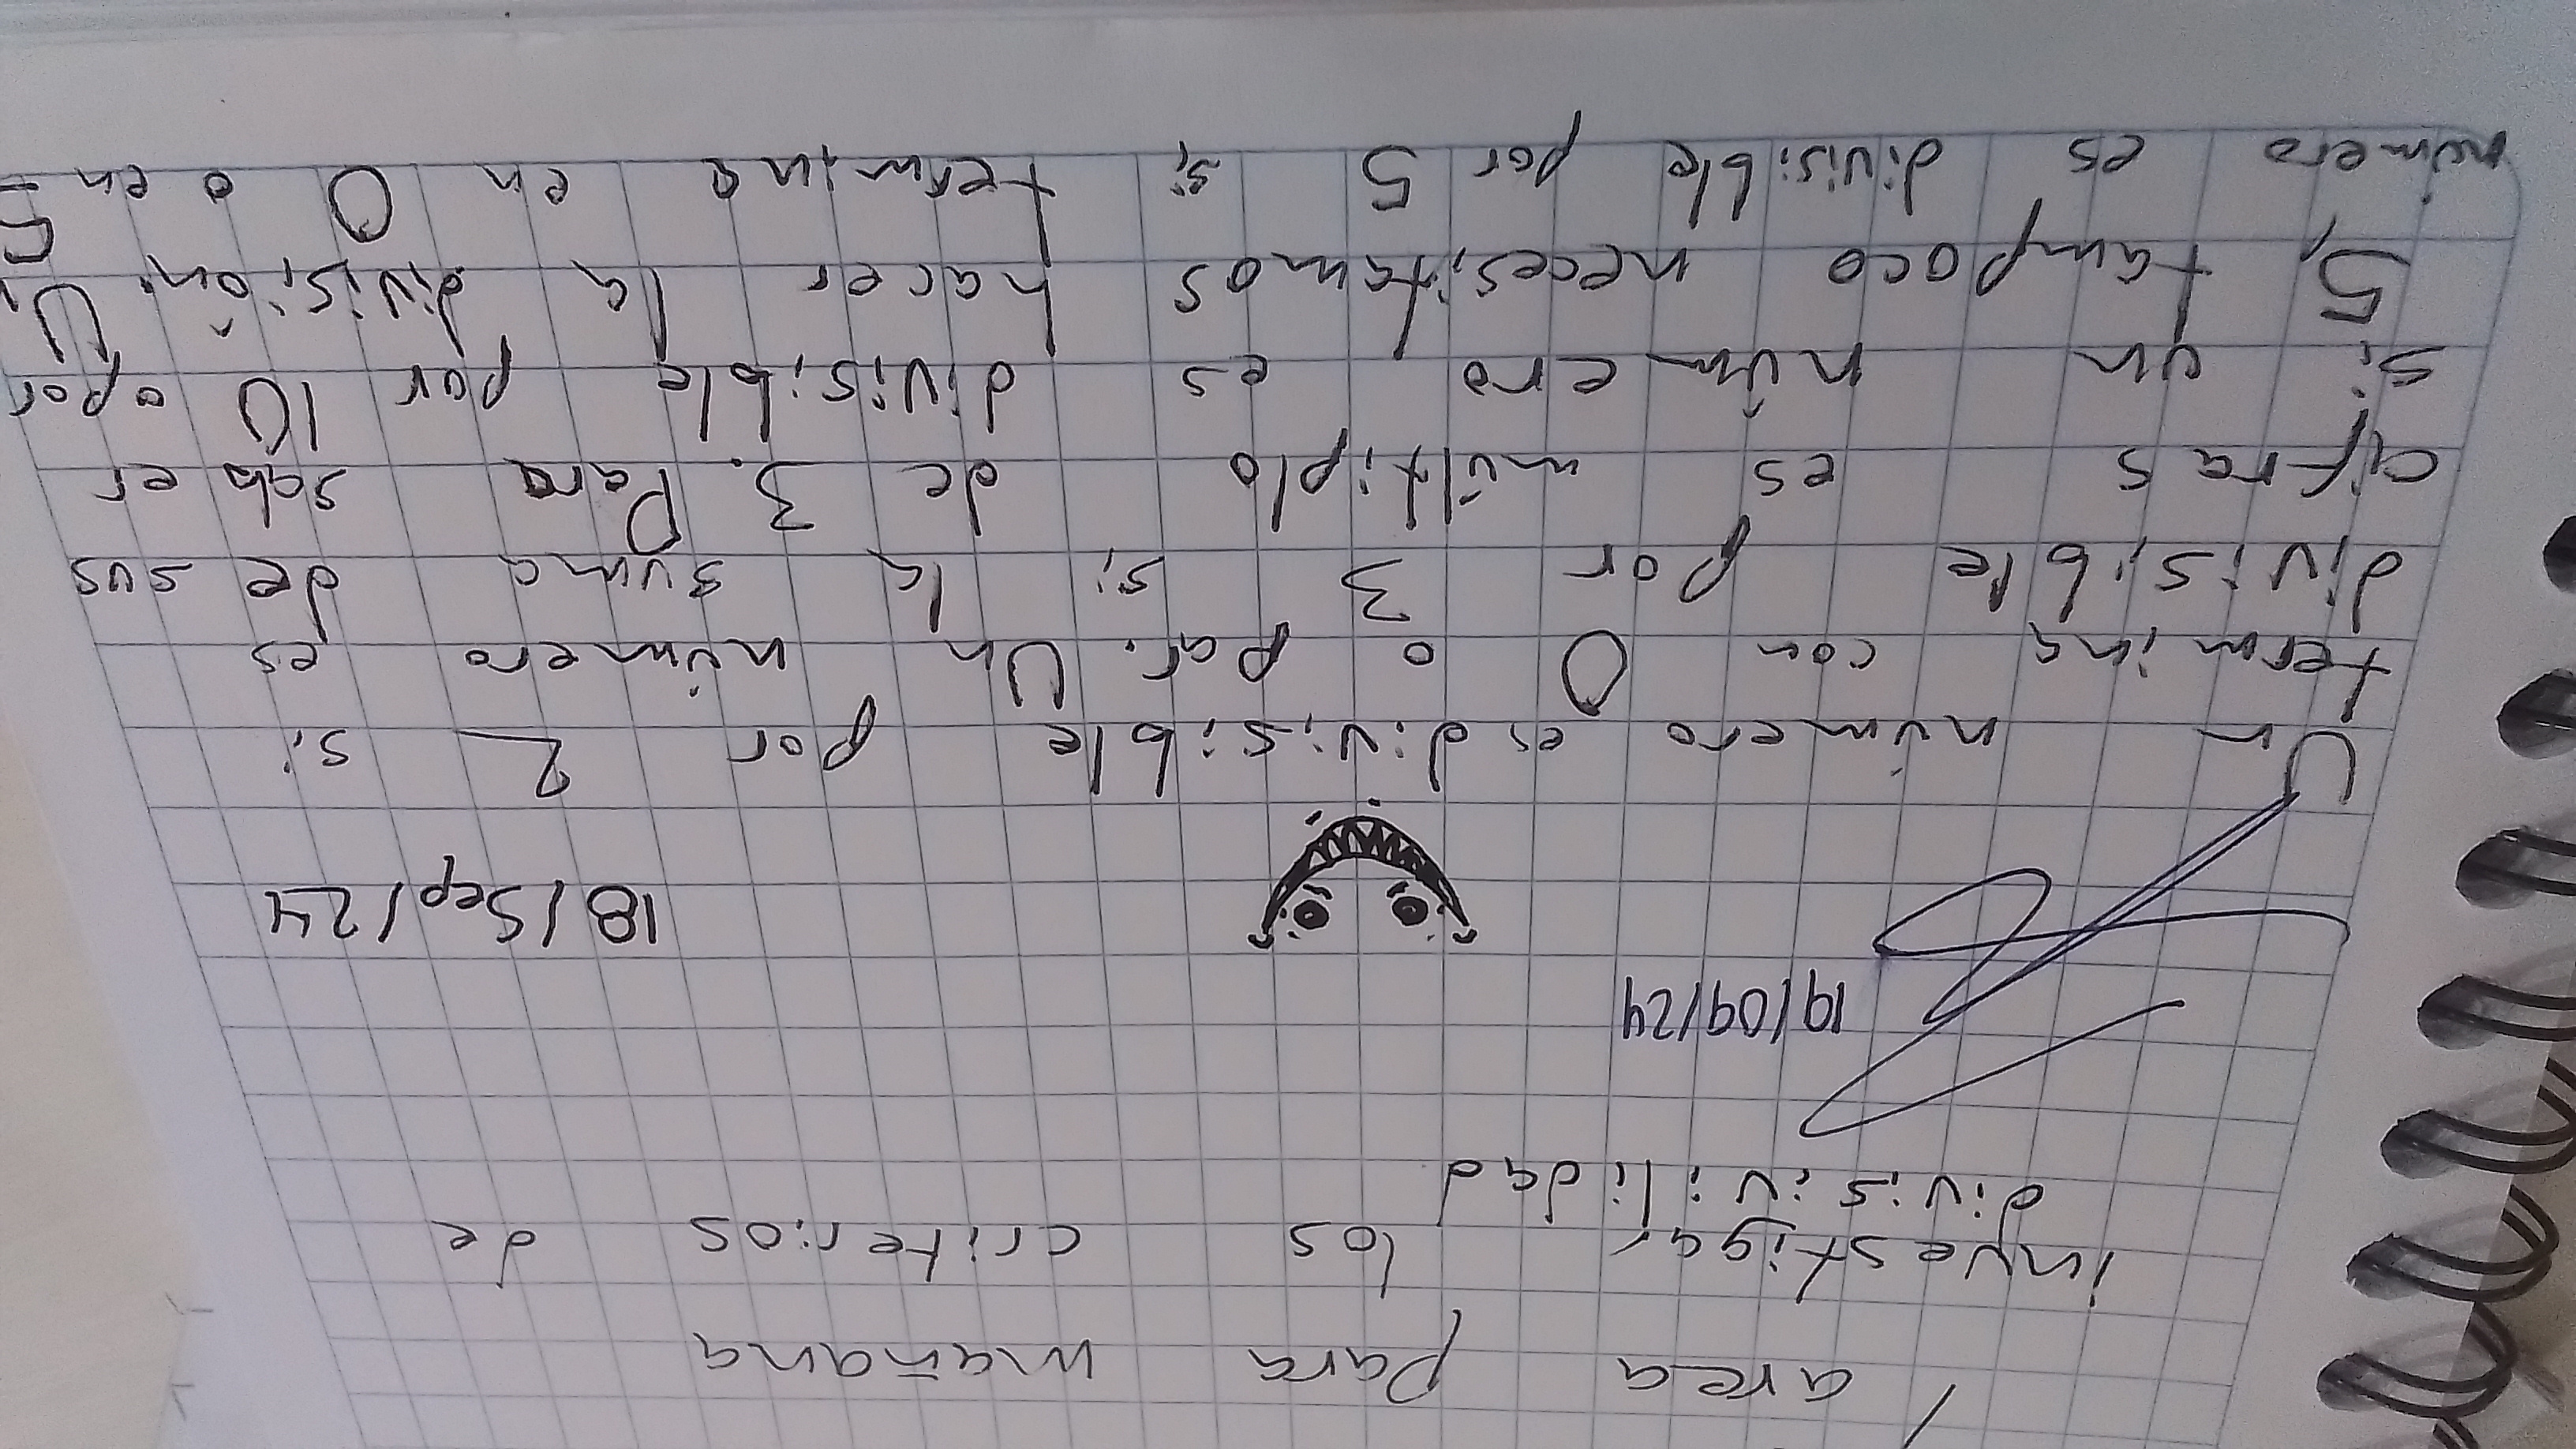 Tarea para mañana
investigar los criterios de
divisivilidad
19/09/24
18/Sep/24
Un número es divisible por 2 si
termina con 0 o par. Un número es
divisible por 3 si la suma de sus
cifras es múltiplo de 3. Para saber
si un número es divisible por 10 o por
5, tampoco necesitamos hacer la división. Un
número es divisible por 5 si termina en 0 o en 5